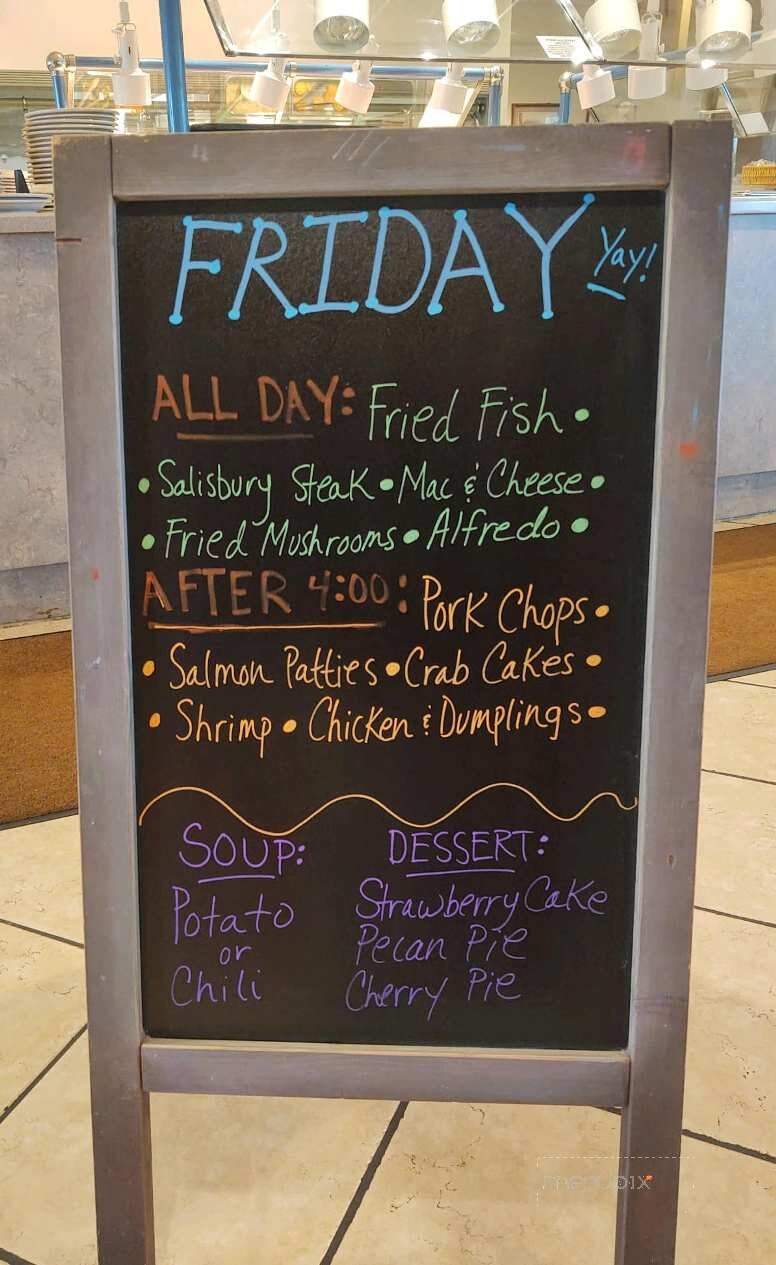 FRIDAY Yay!
ALL DAY: Fried Fish •
• Salisbury Steak • Mac & Cheese •
• Fried Mushrooms • Alfredo •
AFTER 4:00: Pork Chops •
• Salmon Patties • Crab Cakes •
• Shrimp • Chicken & Dumplings •
SOUP:
Potato
or
Chili
DESSERT:
Strawberry Cake
Pecan Pie
Cherry Pie